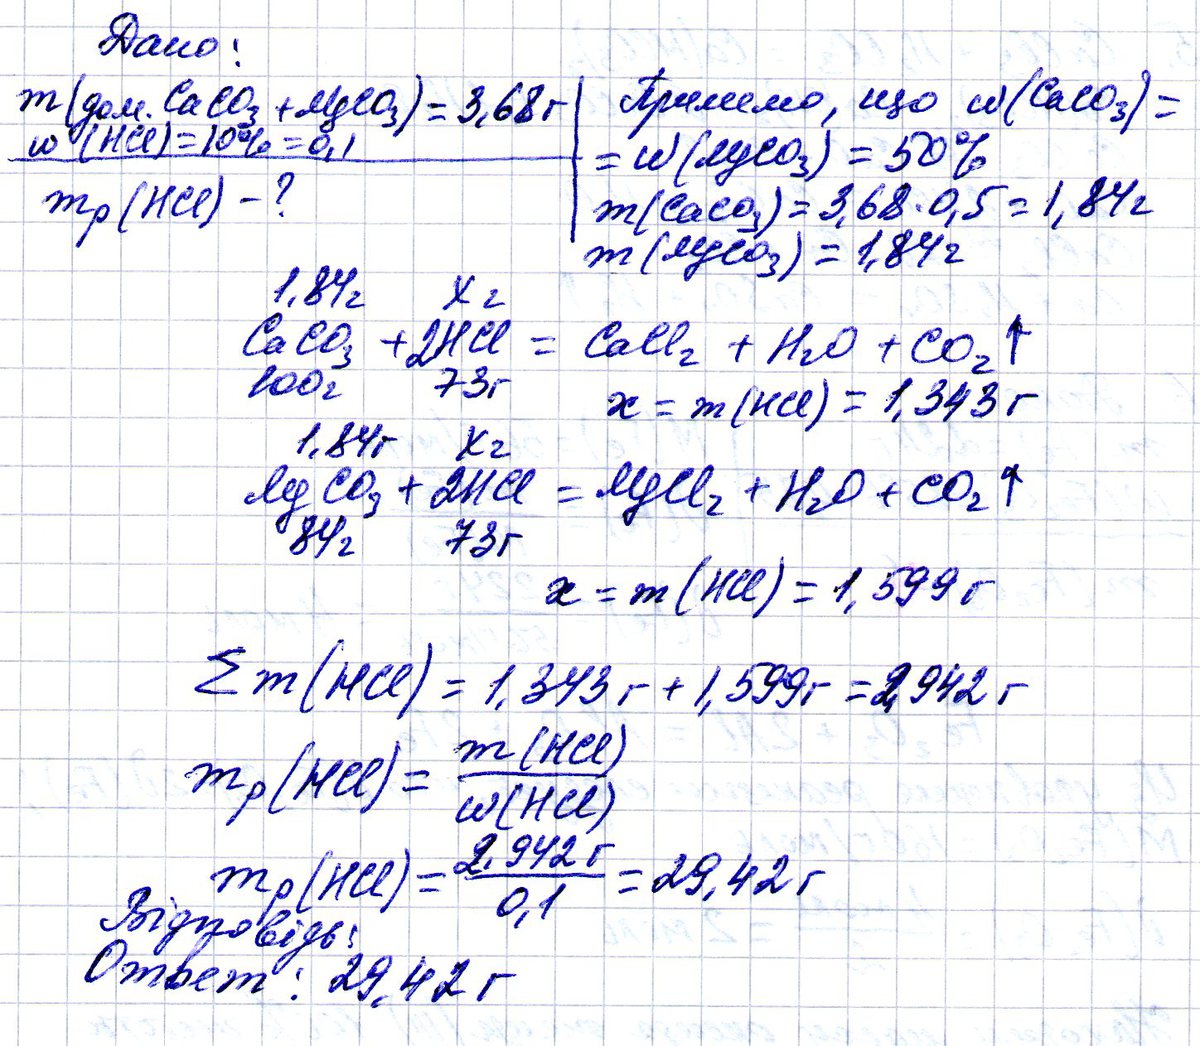 Дано:
m(дом. CaCO₃ + MgCO₃) = 3,68 г
w (HCl) = 10% = 0,1
mр(HCl) – ?
Приймемо, що w(CaCO₃) =
= w(MgCO₃) = 50%
m(CaCO₃) = 3,68·0,5 = 1,84г
m(MgCO₃) = 1,84г
1,84г Xг
CaCO₃ + 2HCl = CaCl₂ + H₂O + CO₂↑
100г 73г
x = m(HCl) = 1,343 г
1,84г Xг
MgCO₃ + 2HCl = MgCl₂ + H₂O + CO₂↑
84г 73г
x = m(HCl) = 1,599 г
Σm(HCl) = 1,343 г + 1,599г = 2,942 г
mр(HCl) = m(HCl) / w(HCl)
mр(HCl) = 2,942 г / 0,1 = 29,42 г
Відповідь:
Ответ: 29,42 г